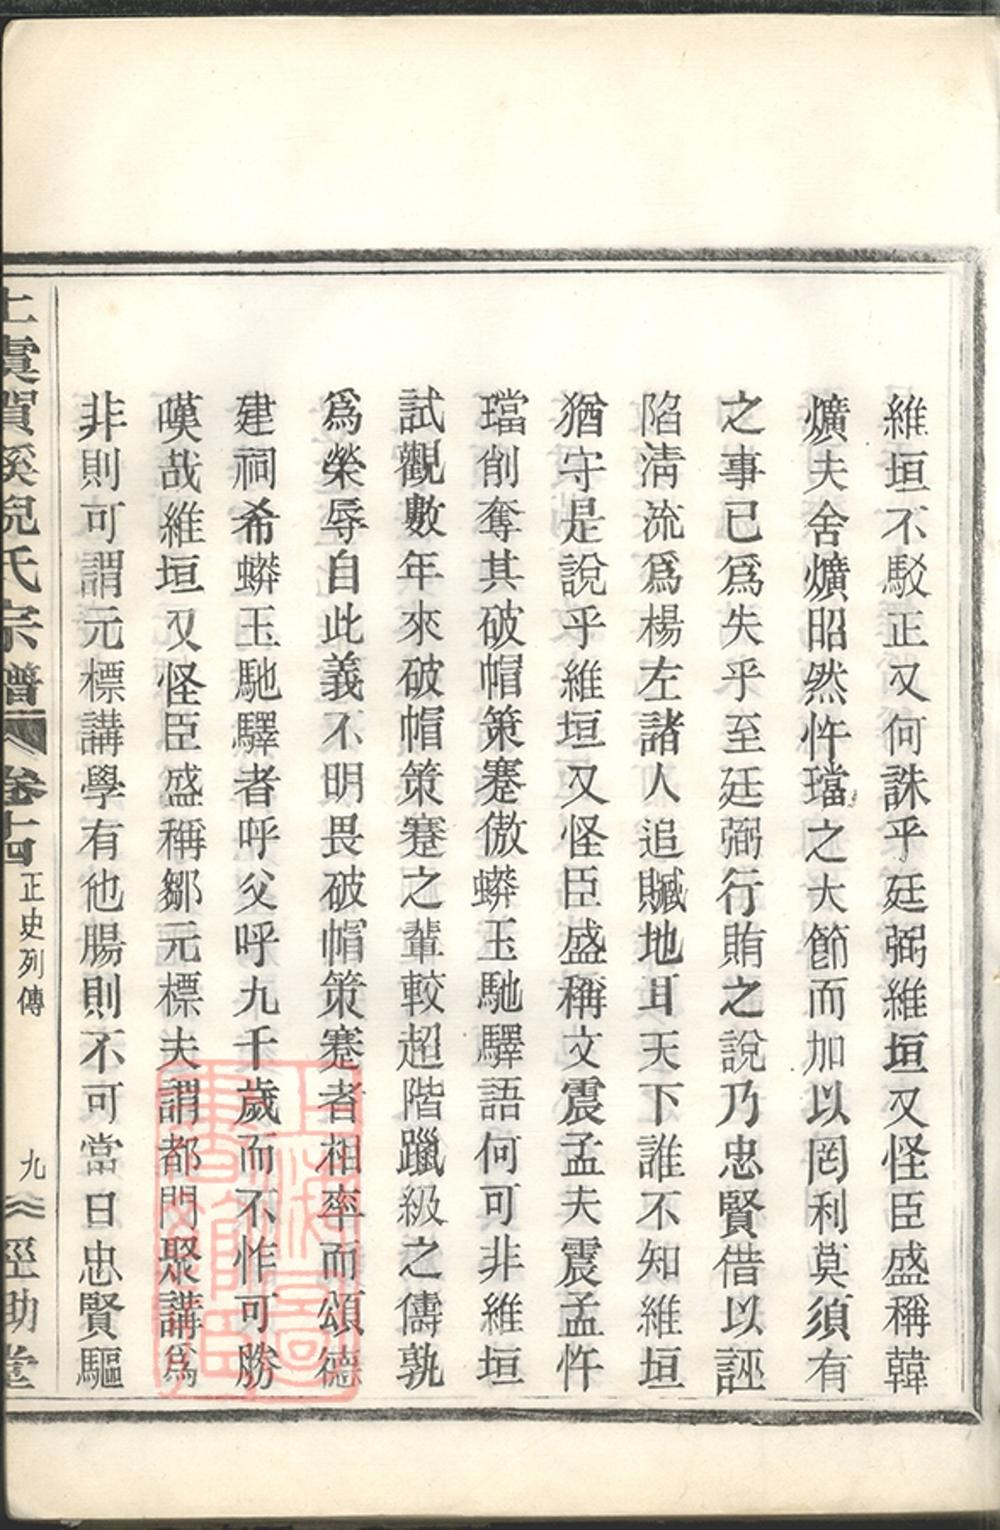 維垣不駁正又何誅乎廷弼維垣又怪臣盛稱韓
爌夫舍爌昭然忤璫之大節而加以罔利莫須有
之事已爲失乎至廷弼行賄之說乃忠賢借以誣
陷淸流爲楊左諸人追贓地耳天下誰不知維垣
猶守是說乎維垣又怪臣盛稱文震孟夫震孟忤
璫削奪其破帽策蹇傲蟒玉馳驛語何可非維垣
試觀數年來破帽策蹇之輩較超階躐級之儔孰
爲榮辱自此義不明畏破帽策蹇者相率而頌德
建祠希蟒玉馳驛者呼父呼九千歲而不怍可勝
嘆哉維垣又怪臣盛稱鄒元標夫謂都門聚講爲
非則可謂元標講學有他腸則不可當日忠賢驅
上虞賀溪倪氏宗譜
卷十四
正史列傳
九
經助堂
上海圖書館藏